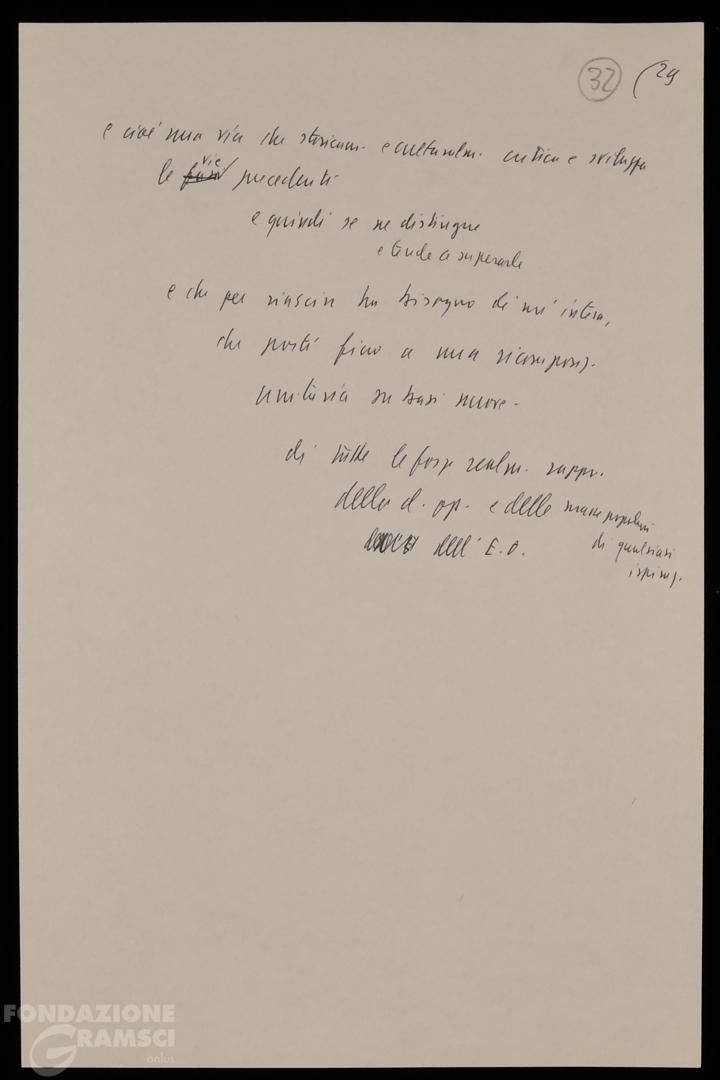 32 (29
e cioè una via che storicam. e culturalm. critica e sviluppa
le fasi vie precedenti
e quindi se ne distingue
e tende a superarle
e che per riuscire ha bisogno di un'intesa,
che porti fino a una ricomposiz.
unitaria su basi nuove -
di tutte le forze realm. rappr.
della cl. op. e delle masse popolari
di qualsiasi
ispiraz.
dell'E. O.
FONDAZIONE
GRAMSCI
onlus